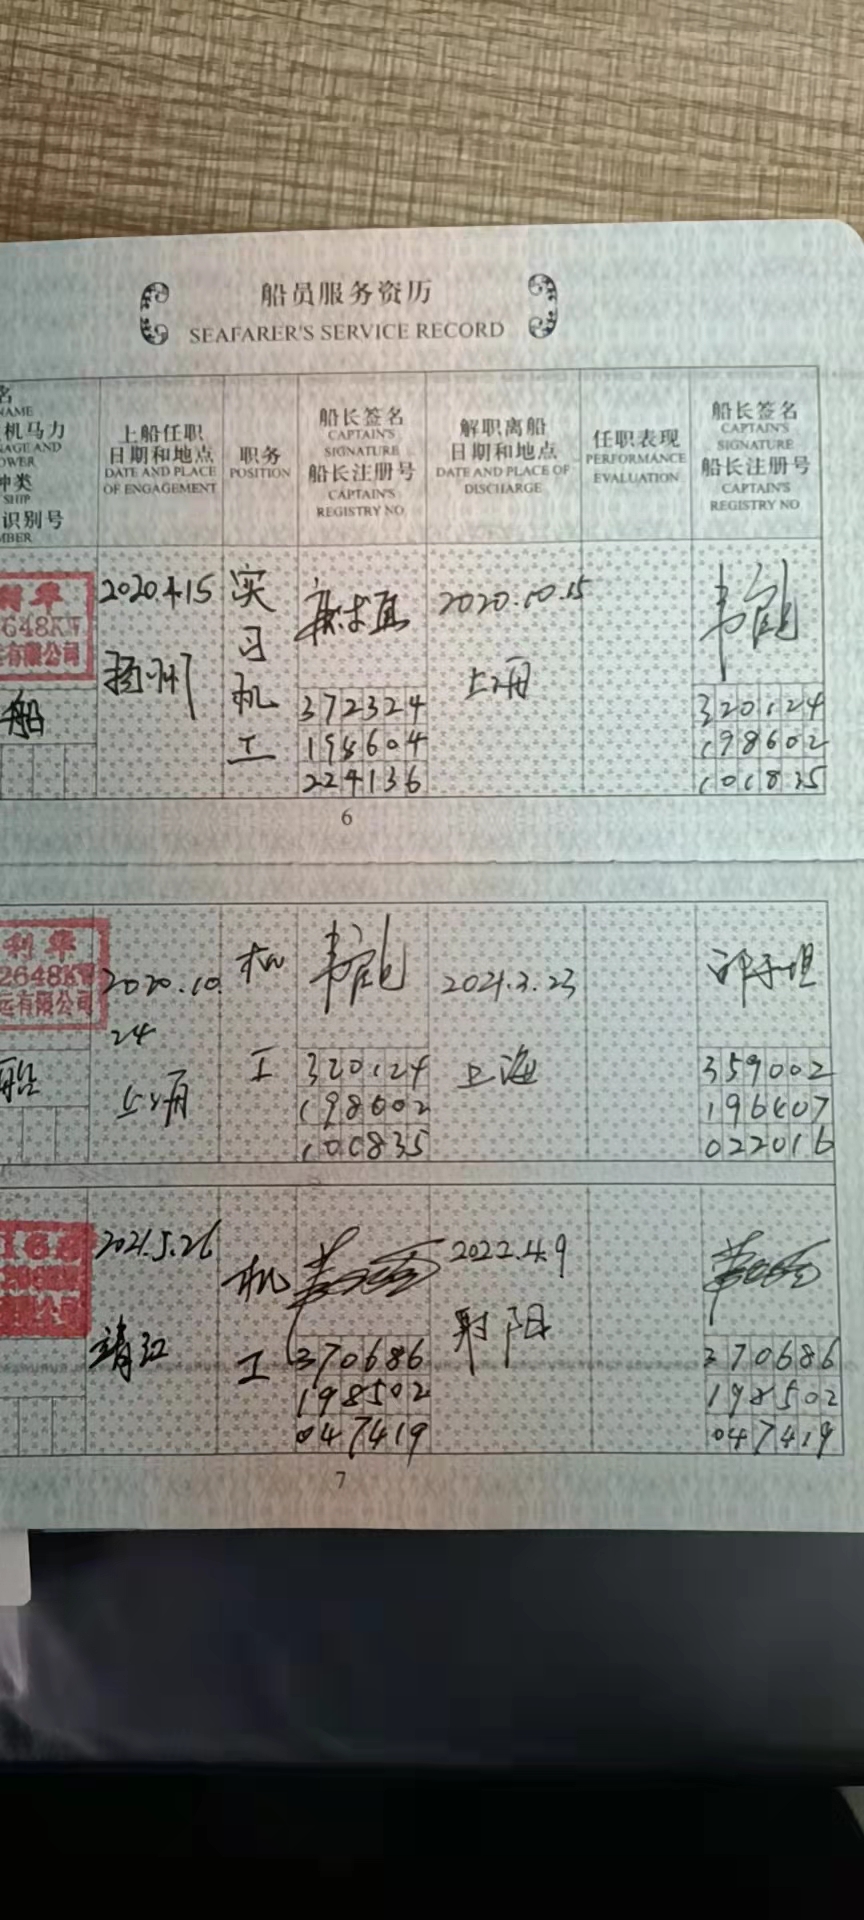 船员服务资历
SEAFARER'S SERVICE RECORD
名
NAME
机马力
AGE AND
OWER
种类
SHIP
识别号
MBER
上船任职
日期和地点
DATE AND PLACE
OF ENGAGEMENT
职务
POSITION
船长签名
CAPTAIN'S
SIGNATURE
船长注册号
CAPTAIN'S
REGISTRY NO
解职离船
日期和地点
DATE AND PLACE OF
DISCHARGE
任职表现
PERFORMANCE
EVALUATION
船长签名
CAPTAIN'S
SIGNATURE
船长注册号
CAPTAIN'S
REGISTRY NO
648KW
有限公司
船
2020.4.15
扬州
实
习
机
工
372324
224136
2020.10.15
上海
320124
198602
101835
6
利华
2648KW
运有限公司
船
2020.10.
24
上海
机
工
320124
198602
100835
上海
359002
196407
022016
2021.5.26
靖江
机
工
370686
198502
047419
2022.4.9
射阳
370686
198502
047419
7